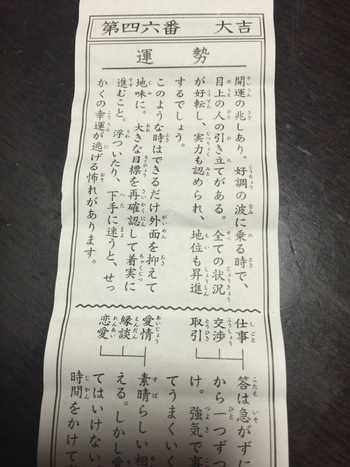 第四六番　大吉
運　勢
開運の兆しあり。好調の波に乗る時で、
目上の人の引き立てがある。全ての状況
が好転し、実力も認められ、地位も昇進
するでしょう。
このような時はできるだけ外面を抑えて
地味に。大きな目標を再確認して着実に
進むこと。浮ついたり、下手に迷うと、せっ
かくの幸運が逃げる怖れがあります。
仕事
交渉
取引
答は急がずに
から一つずつ
け。強気で事
てうまくいく
愛情
縁談
恋愛
素晴らしい相
える。しかし
てはいけない
時間をかけて